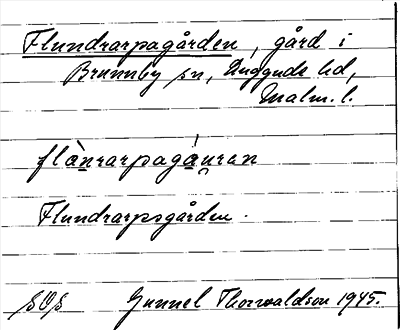 Flundrarpagården, gård i
Brunnby sn, Luggude hd,
Malm. l.
flànrarpagáuran
Flundrarpsgården.
SOS Gunnel Thorwaldson 1945.